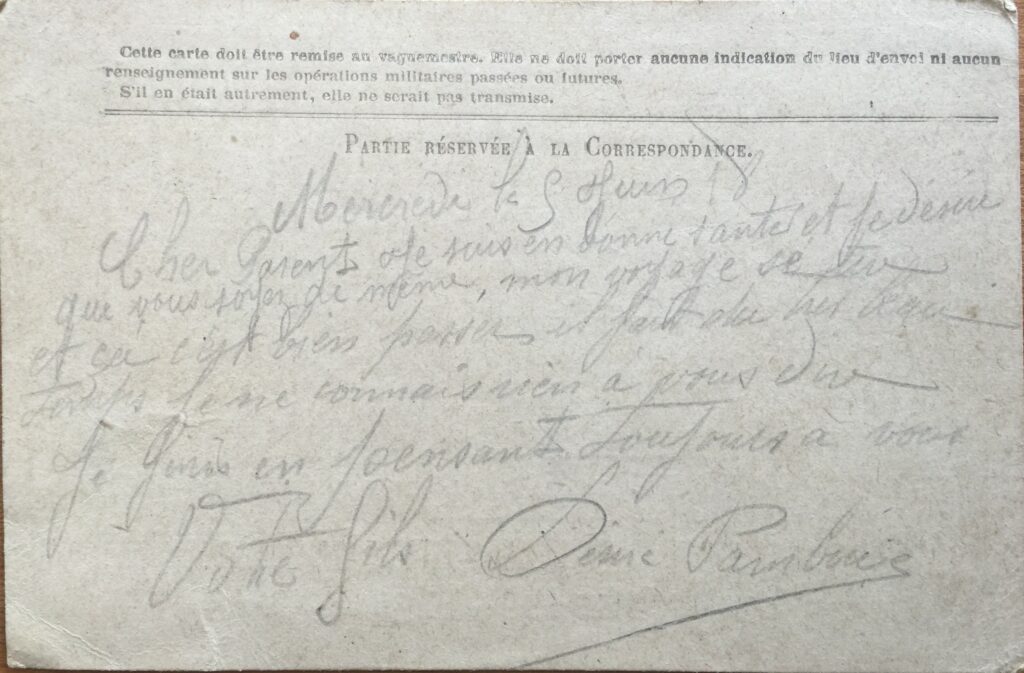 Cette carte doit être remise au vaguemestre. Elle ne doit porter aucune indication du lieu d'envoi ni aucun
renseignement sur les opérations militaires passées ou futures.
S'il en était autrement, elle ne serait pas transmise.
PARTIE RÉSERVÉE À LA CORRESPONDANCE.
Mercredi le 5 Juin
Cher Parent Je suis en bonne santé et je désire
que vous soyez de même, mon voyage se
et ça c'est bien passer il fait du très beau
temps je ne connais rien à vous dire
Je finis en pensant toujours à vous
Votre fils